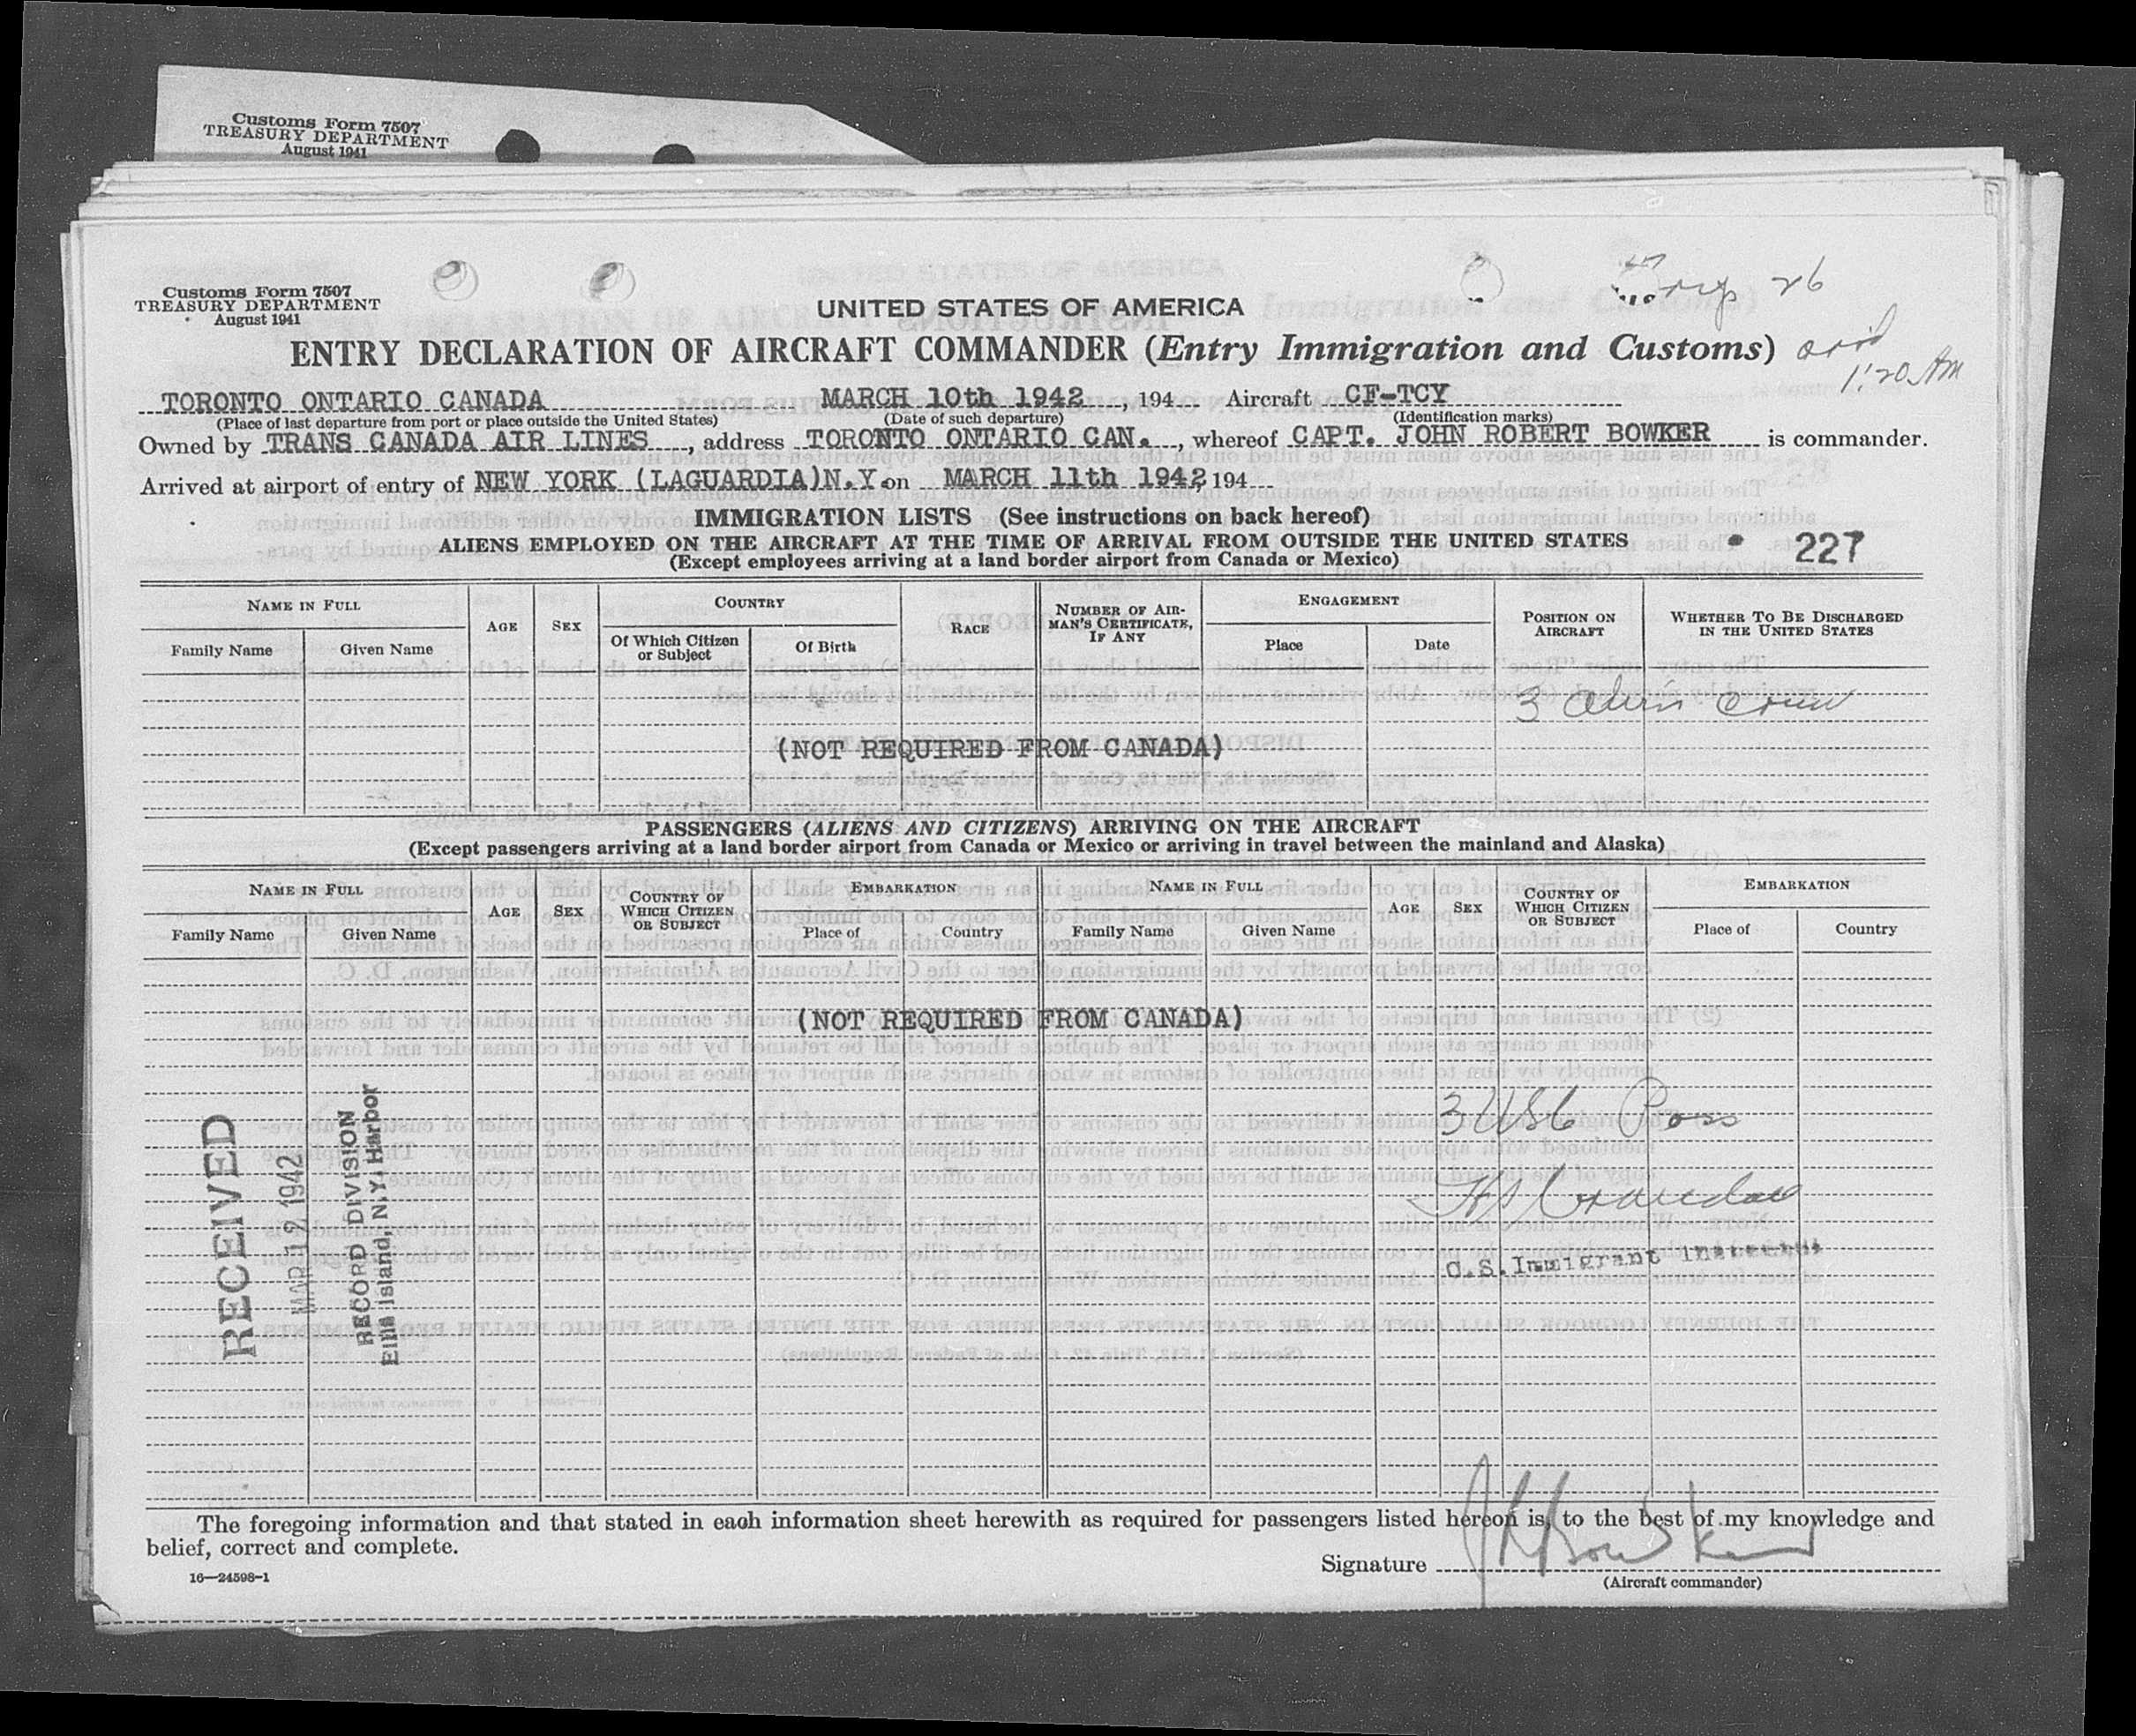 Customs Form 7507
TREASURY DEPARTMENT
August 1941
Customs Form 7507
TREASURY DEPARTMENT
August 1941
26
UNITED STATES OF AMERICA
ENTRY DECLARATION OF AIRCRAFT COMMANDER (Entry Immigration and Customs)
1:20 AM
TORONTO ONTARIO CANADA MARCH 10th 1942, 194 Aircraft CF-TCY
(Place of last departure from port or place outside the United States) (Date of such departure) (Identification marks)
Owned by TRANS CANADA AIR LINES, address TORONTO ONTARIO CAN., whereof CAPT. JOHN ROBERT BOWKER is commander.
Arrived at airport of entry of NEW YORK (LAGUARDIA)N.Y. on MARCH 11th 1942, 194
IMMIGRATION LISTS (See instructions on back hereof)
ALIENS EMPLOYED ON THE AIRCRAFT AT THE TIME OF ARRIVAL FROM OUTSIDE THE UNITED STATES
227
(Except employees arriving at a land border airport from Canada or Mexico)
NAME IN FULL AGE SEX COUNTRY RACE NUMBER OF AIRMAN'S CERTIFICATE, IF ANY ENGAGEMENT POSITION ON AIRCRAFT WHETHER TO BE DISCHARGED IN THE UNITED STATES
Family Name Given Name Of Which Citizen or Subject Of Birth Place Date
3 Alien Crew
(NOT REQUIRED FROM CANADA)
PASSENGERS (ALIENS AND CITIZENS) ARRIVING ON THE AIRCRAFT
(Except passengers arriving at a land border airport from Canada or Mexico or arriving in travel between the mainland and Alaska)
NAME IN FULL AGE SEX COUNTRY OF WHICH CITIZEN OR SUBJECT EMBARKATION NAME IN FULL AGE SEX COUNTRY OF WHICH CITIZEN OR SUBJECT EMBARKATION
Family Name Given Name Place of Country Family Name Given Name Place of Country
(NOT REQUIRED FROM CANADA)
3 USC Pass
U.S. Immigrant Inspector
RECEIVED
MAR 12 1942
RECORD DIVISION
Ellis Island, N.Y. Harbor
The foregoing information and that stated in each information sheet herewith as required for passengers listed hereon is, to the best of my knowledge and
belief, correct and complete.
16—24598-1
Signature J R Bowker
(Aircraft commander)